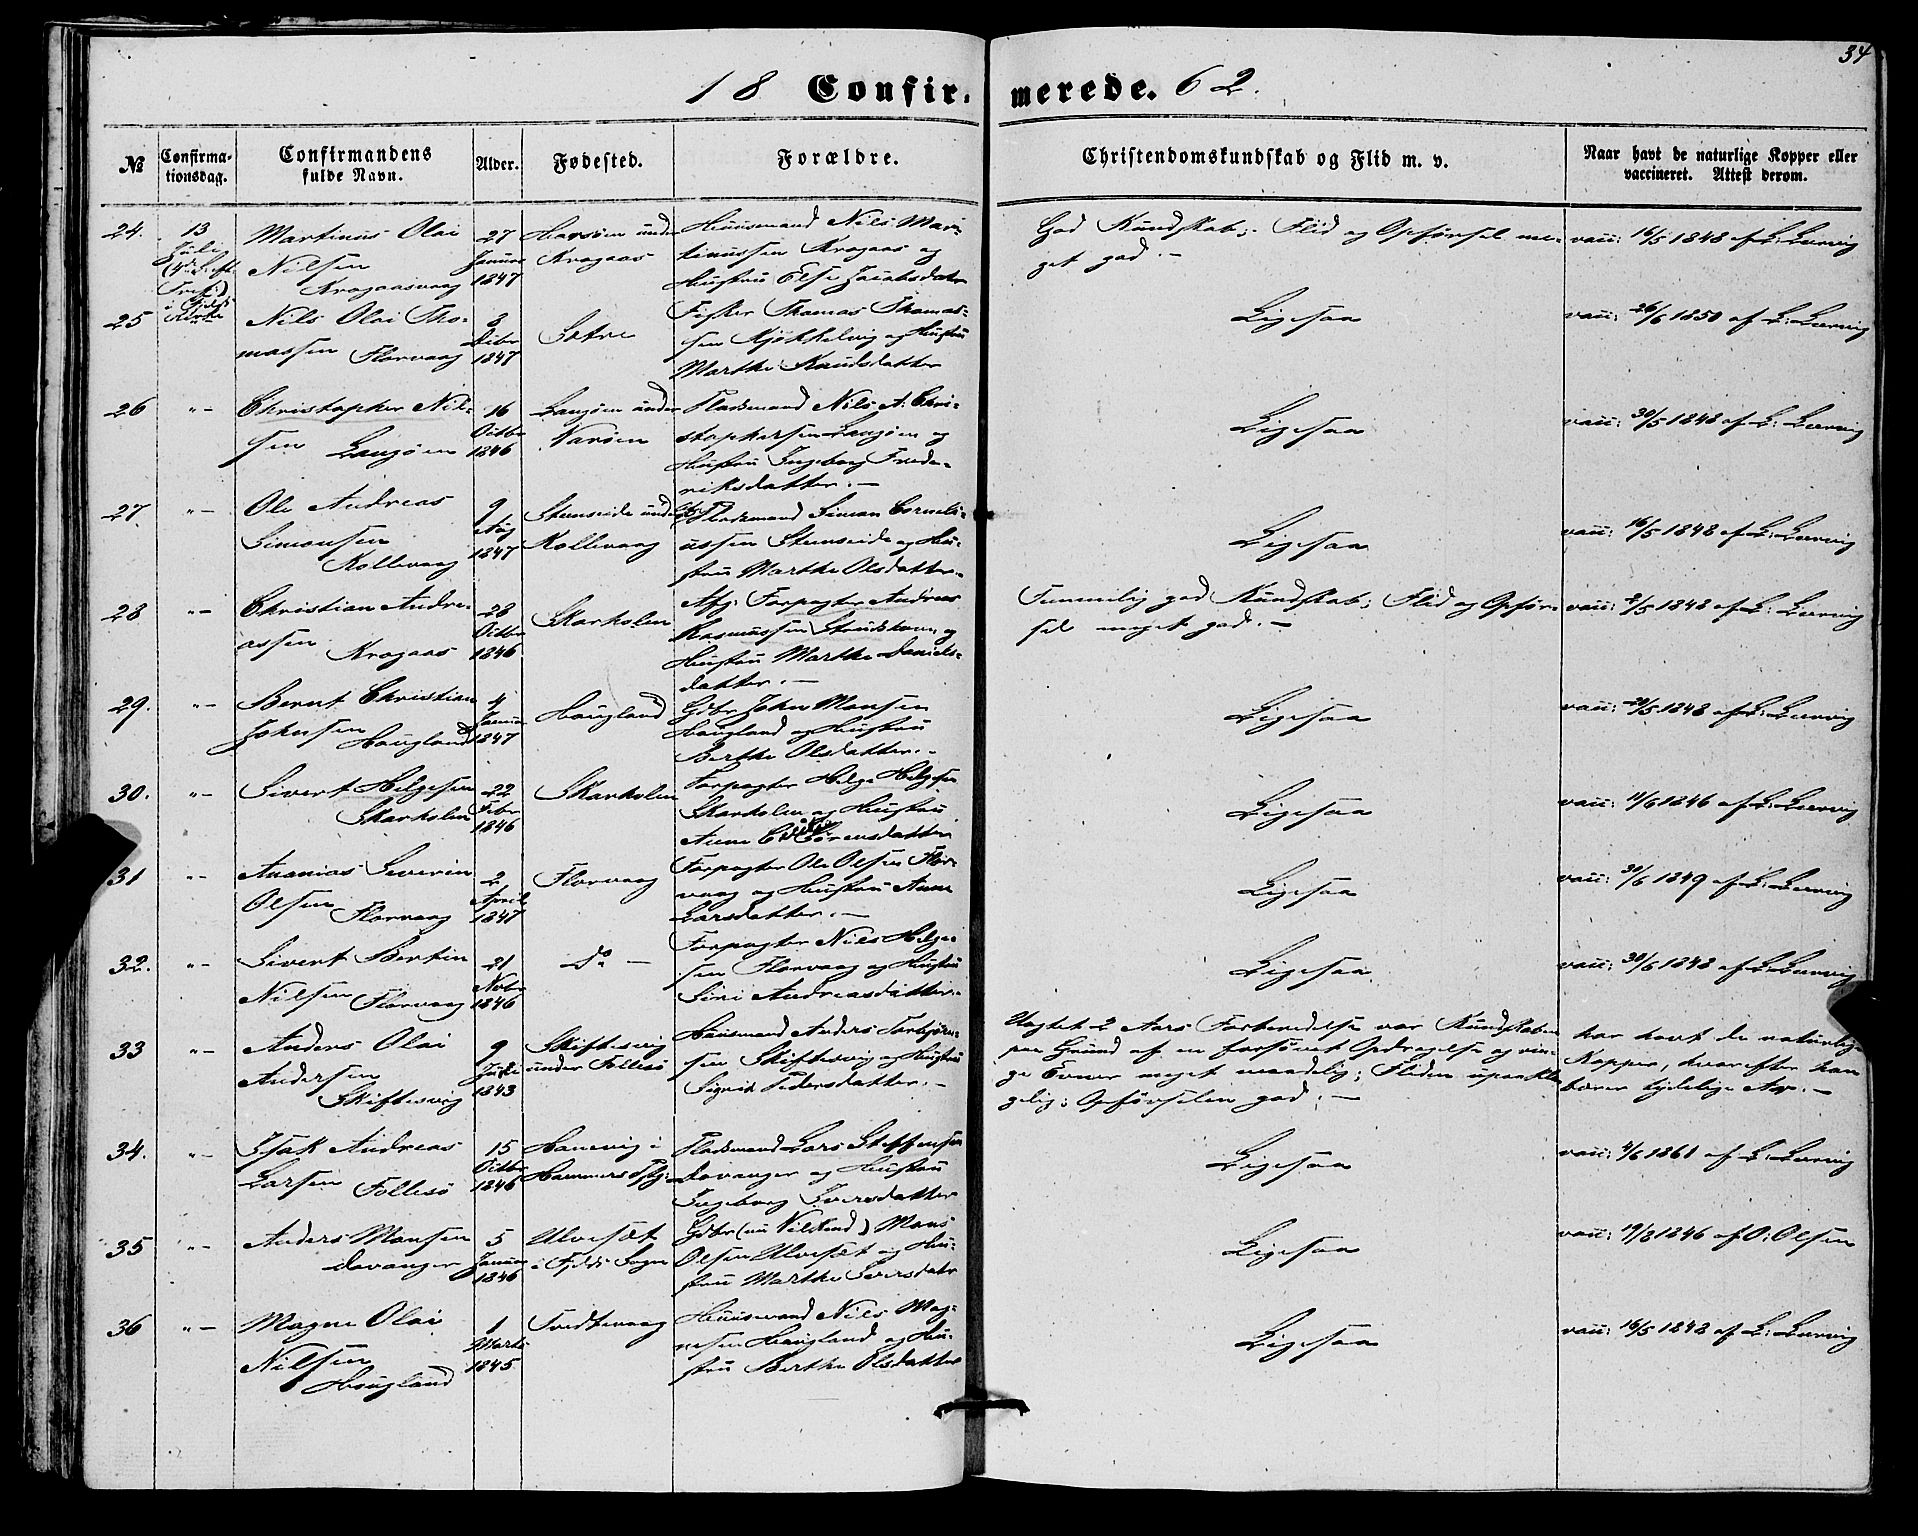 34
18 Confirmerede. 62.
№
Confirma-
tionsdag.
Confirmandens
fulde Navn.
Alder.
Fødested.
Forældre.
Christendomskundskab og Flid m. v.
Naar havt de naturlige Kopper eller
vaccineret. Attest derom.
24.
13
Juli
Martinus Olai
Nilsen
Kragaasvaag
27
Januar
1847
under
Kragaas
Huusmand Nils Mar-
tinussen Kragaas og
Hustru Else Jacobsdatr
God Kundskab; Flid og Opførsel me-
get god.-
vacc: 16/5 1848 af L: Lervig
25
Nils Olai Tho-
massen Florvaag
8
Debr
1847
Sætre
Fisker Thomas Thomas-
sen Kjøkkelvig og Hustru
Marthe Knudsdatter
Ligesaa
vacc: 26/6 1850 af L: Lervig
26
"-
Christopher Nil-
sen Langøen
16
Octbr
1846
Langøen under
Narøen
Pladsmand Nils A. Chri-
stophersen Langøen og
Hustru Ingeborg Frede-
riksdatter.-
Ligesaa
vacc: 30/5 1848 af L: Lervig
27.
"-
Ole Andreas
Simonsen
Kollevaag
9
Aug
1847
Stemseide under
Kollevaag
Pladsmand Simon Corneli-
ussen Stemseide og Hu-
stru Marthe Olsdatter.
Ligesaa
vacc: 16/5 1848 af L: Lervig
28
"-
Christian Andre-
assen Kragaas
28
Octbr
1846
Skarholen
Afg. Forpagter Andreas
Rasmussen og
Hustru Marthe Daniels-
datter.-
Temmelig god Kundskab; Flid og Opfør-
sel meget god.-
vacc: /5 1848 af L: Lervig
29.
"-
Bernt Christian
Johnsen
Haugland
4
Januar
1847
Haugland
Gdbr John Monsen
Haugland og Hustru
Berthe Olsdatter.-
Ligesaa
vacc: /5 1848 af L: Lervig
30.
"-
Sivert Helgesen
Skarholen
22
Febr
1846
Skarholen
Forpagter Helge Helgesen
Skarholen og Hustru
Anne Sørensdatter
Ligesaa
vacc: 11/6 1846 af L: Lervig
31
"-
Ananias Severin
Olsen
Florvaag
2
April
1847
Florvaag
Forpagter Ole Olsen Flor-
vaag og Hustru Anne
Larsdatter.-
Ligesaa
vacc: 30/6 1849 af L: Lervig
32.
"-
Sivert Bertin
Nilsen Florvaag
21
Novbr
1846
Do -
Forpagter Nils Helge-
sen Florvaag og Hustru
Siri Andreasdatter.
Ligesaa
vacc: 30/6 1848 af L: Lervig
33
"-
Anders Olai
Andersen
Skiftesvig
9
1843
Skiftesvig
under Follesø
Huusmand Anders Torbjørn-
sen Skiftesvig og Hustru
Sigrid Pedersdatter.-
Uagtet 2 Aars Forberedelse var Kundskaben
paa Grund af en forsømt Opdragelse og rin-
ge Evner meget maadelig; Fliden upaakla-
gelig; Opførselen god.-
har havt de naturlige
Kopper, hvorefter han
bærer tydelige Ar.-
34.
"-
Isak Andreas
Larsen Follesø
15
Octbr
1846
Hanevig i
Hammers
Pladsmand Lars Steffensen
Davanger og Hustru
Ingeborg Iversdatter
Ligesaa
vacc: 4/6 1861 af L: Lervig
35
"-
Anders Monsen
Davanger
5
Januar
1846
Ulvesæt
i Fjelds Sogn
Gdbr (nu ) Mons
Olsen Ulvesæt og Hu-
stru Marthe Iversdatr
Ligesaa
vacc: 19/8 1846 af O: Olsen
36
"-
Magne Olai
Nilsen
Haugland
1
Marts
1845
Tvedtevaag
Huusmand Nils Mag-
nesen Haugland og Hu-
stru Berthe Olsdatter
Ligesaa
vacc: 16/5 1848 af L: Lervig